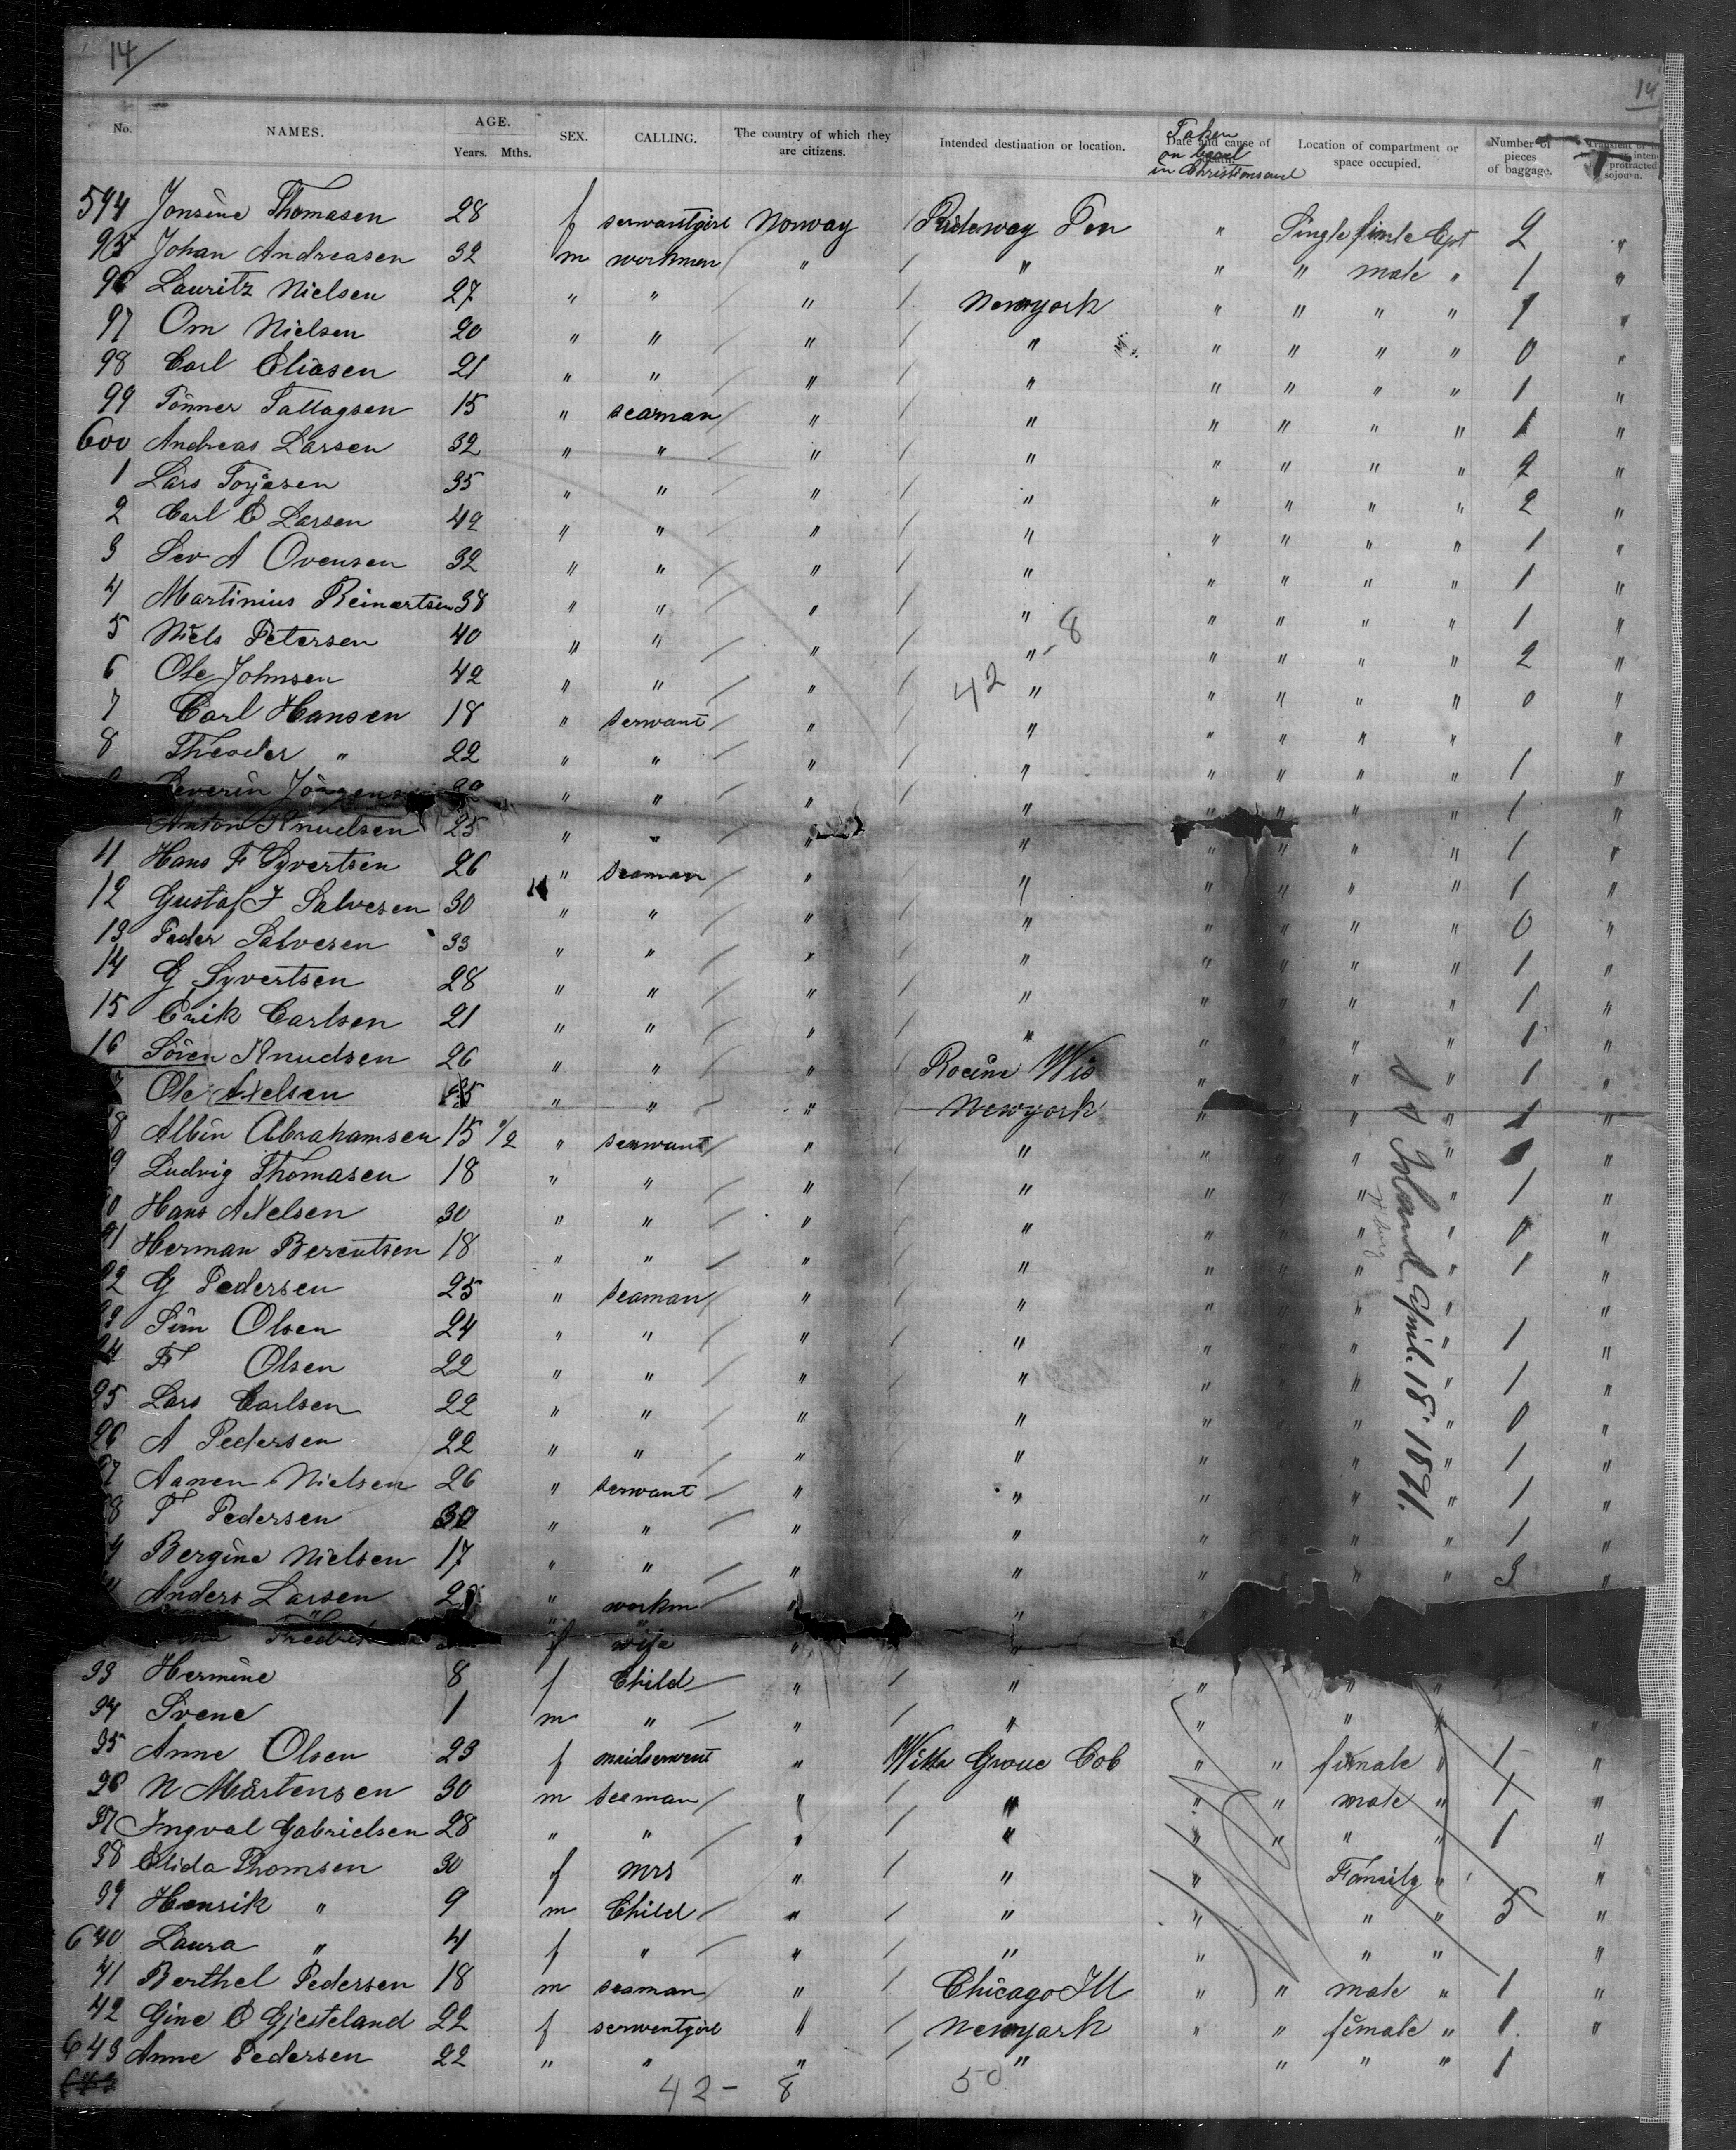 14
14
No. NAMES. AGE. Years. Mths. SEX. CALLING. The country of which they are citizens. Intended destination or location. Date and cause of Taken on board in Christiansand Location of compartment or space occupied. Number of pieces of baggage. protracted sojourn.
594 Jonsine Thomasen 28 f servantgirl Norway / Rideway Pen " Single fimle Cpt 2 "
95 Johan Andreasen 32 m workmen / " / " " " male " 1 "
96 Lauritz Nielsen 27 " " / " / Newyork " " " " 1 "
97 Om Nielsen 20 " " / " / " " " " " 0 "
98 Carl Eliasen 21 " " / " / " " " " " 1 "
99 Tönner Tallagsen 15 " seaman / " / " " " " " 1 "
600 Andreas Larsen 32 " " / " / " " " " " 2 "
1 Lars Torjesen 35 " " / " / " " " " " 2 "
2 Carl C Larsen 42 " " / " / " " " " " 1 "
3 Sev A Ovensen 32 " " / " / " " " " " 1 "
4 Martinius Reinertsen 38 " " / " / " " " " " 1 "
5 Niels Petersen 40 " " / " / " - 8 " " " " 2 "
6 Ole Johnsen 42 " " / " / 42 " " " " " 0 "
7 Carl Hansen 18 " servant / " / " " " " " "
8 Theoder " 22 " " / " / " " " " " 1 "
Severin " " / " / " " " " " 1 "
Anton Knudsen 25 " " / " " " " " " 1 "
11 Hans F Syvertsen 26 " seaman / " / " " " " " 1 "
12 Gustaf J Salvesen 30 " " / " / " " " " " 0 "
13 Peder Salvesen 33 " " / " / " " " " " 1 "
14 G Syvertsen 28 " " / " / " " " " " 1 "
15 Erik Carlsen 21 " " / " / " " " " " 1 "
16 Sören Knudsen 26 " " / " / Rocine Wis " " " 1 "
Ole Nielsen " " / " Newyork " " " 1 "
8 Albin Abrahamsen 15 1/2 " servant / " " " " " "
9 Ludvig Thomasen 18 " " / " " " " " 1 "
0 Hans Nielsen 30 " " / " " " " " 0 "
21 Herman Berentsen 18 " " / " " " " " 1 "
22 G Pedersen 25 " seaman / " " " " " "
23 Sim Olsen 24 " " / " / " " " " 1 "
24 F Olsen 22 " " / " " " " " 1 "
25 Lars Carlsen 22 " " / " " " " " 0 "
26 A Pedersen 22 " " / " " " " " 1 "
27 Aanen Nielsen 26 " servant / " " " " " 1 "
8 T Pedersen 30 " " / " " " " " 1 "
9 Bergine Nielsen 17 " " / " " " " " 3 "
Anders Larsen " workm / " " "
f wife " "
33 Hermine 8 f Child / " / " " " "
34 Svene 1 m " / " / " " " " "
35 Anne Olsen 23 f maidservent " Witta Groue Cob " " fimale " 1 "
36 N Mårtensen 30 m seaman / " / " " " male " 1 "
37 Ingval Gabrielsen 28 " " / " / " " " " " 1 "
38 Elida Thomsen 30 f Mrs " / " " Family " "
39 Henrik " 9 m Child / " / " " " " 5 "
640 Laura " 4 f " / " / " " " " "
41 Berthel Pedersen 18 m seaman / " / Chicago Ill " " male " 1 "
42 Gine C Gjesteland 22 f serventgirl " / Newyork " " fimale " 1 "
643 Anne Pedersen 22 " " " / " " " " 1
42 - 8 50
S S Island. April. 18. 1891.